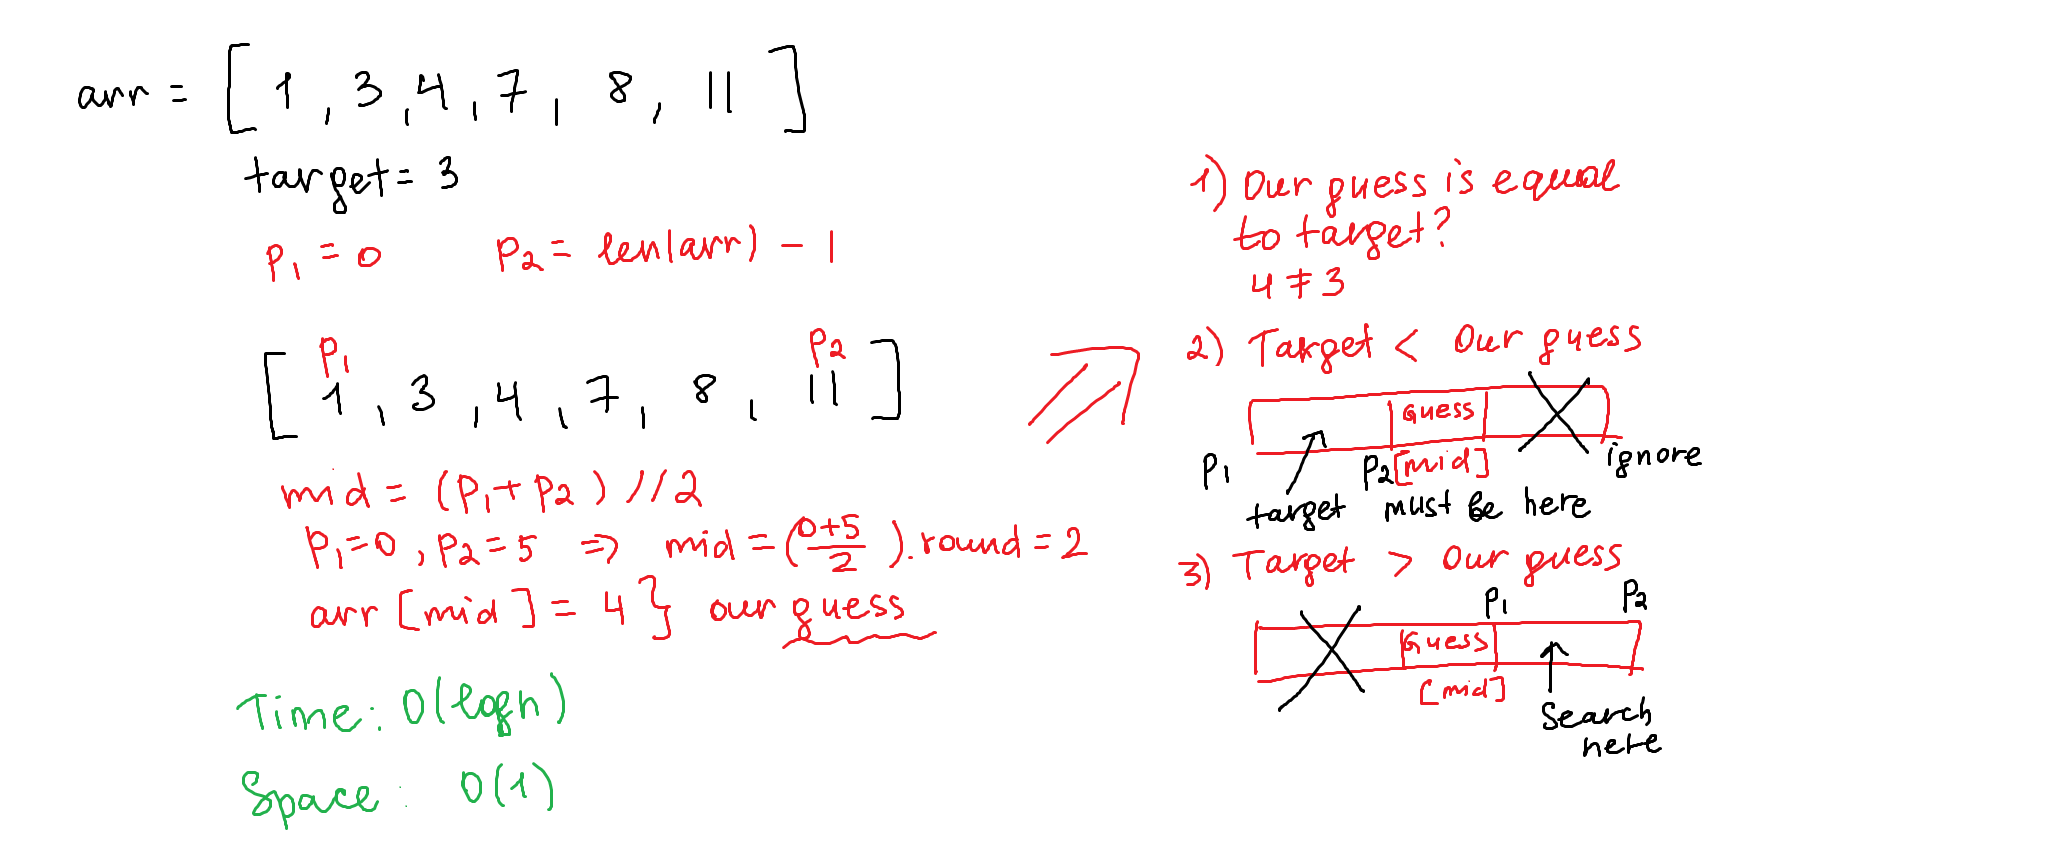 arr = [ 1 , 3 , 4 , 7 , 8 , 11 ]
target = 3
P1 = 0 P2 = len(arr) - 1
P1 P2
[ 1 , 3 , 4 , 7 , 8 , 11 ]
mid = (P1 + P2) // 2
P1=0 , P2=5 => mid = (0+5/2).round = 2
arr [mid] = 4 } our guess
Time: O(logn)
Space: O(1)
1) Our guess is equal
to target?
4 ≠ 3
2) Target < Our guess
Guess
P1 P2 [mid] ignore
target must be here
3) Target > Our guess
P1 P2
Guess
[mid]
Search
here